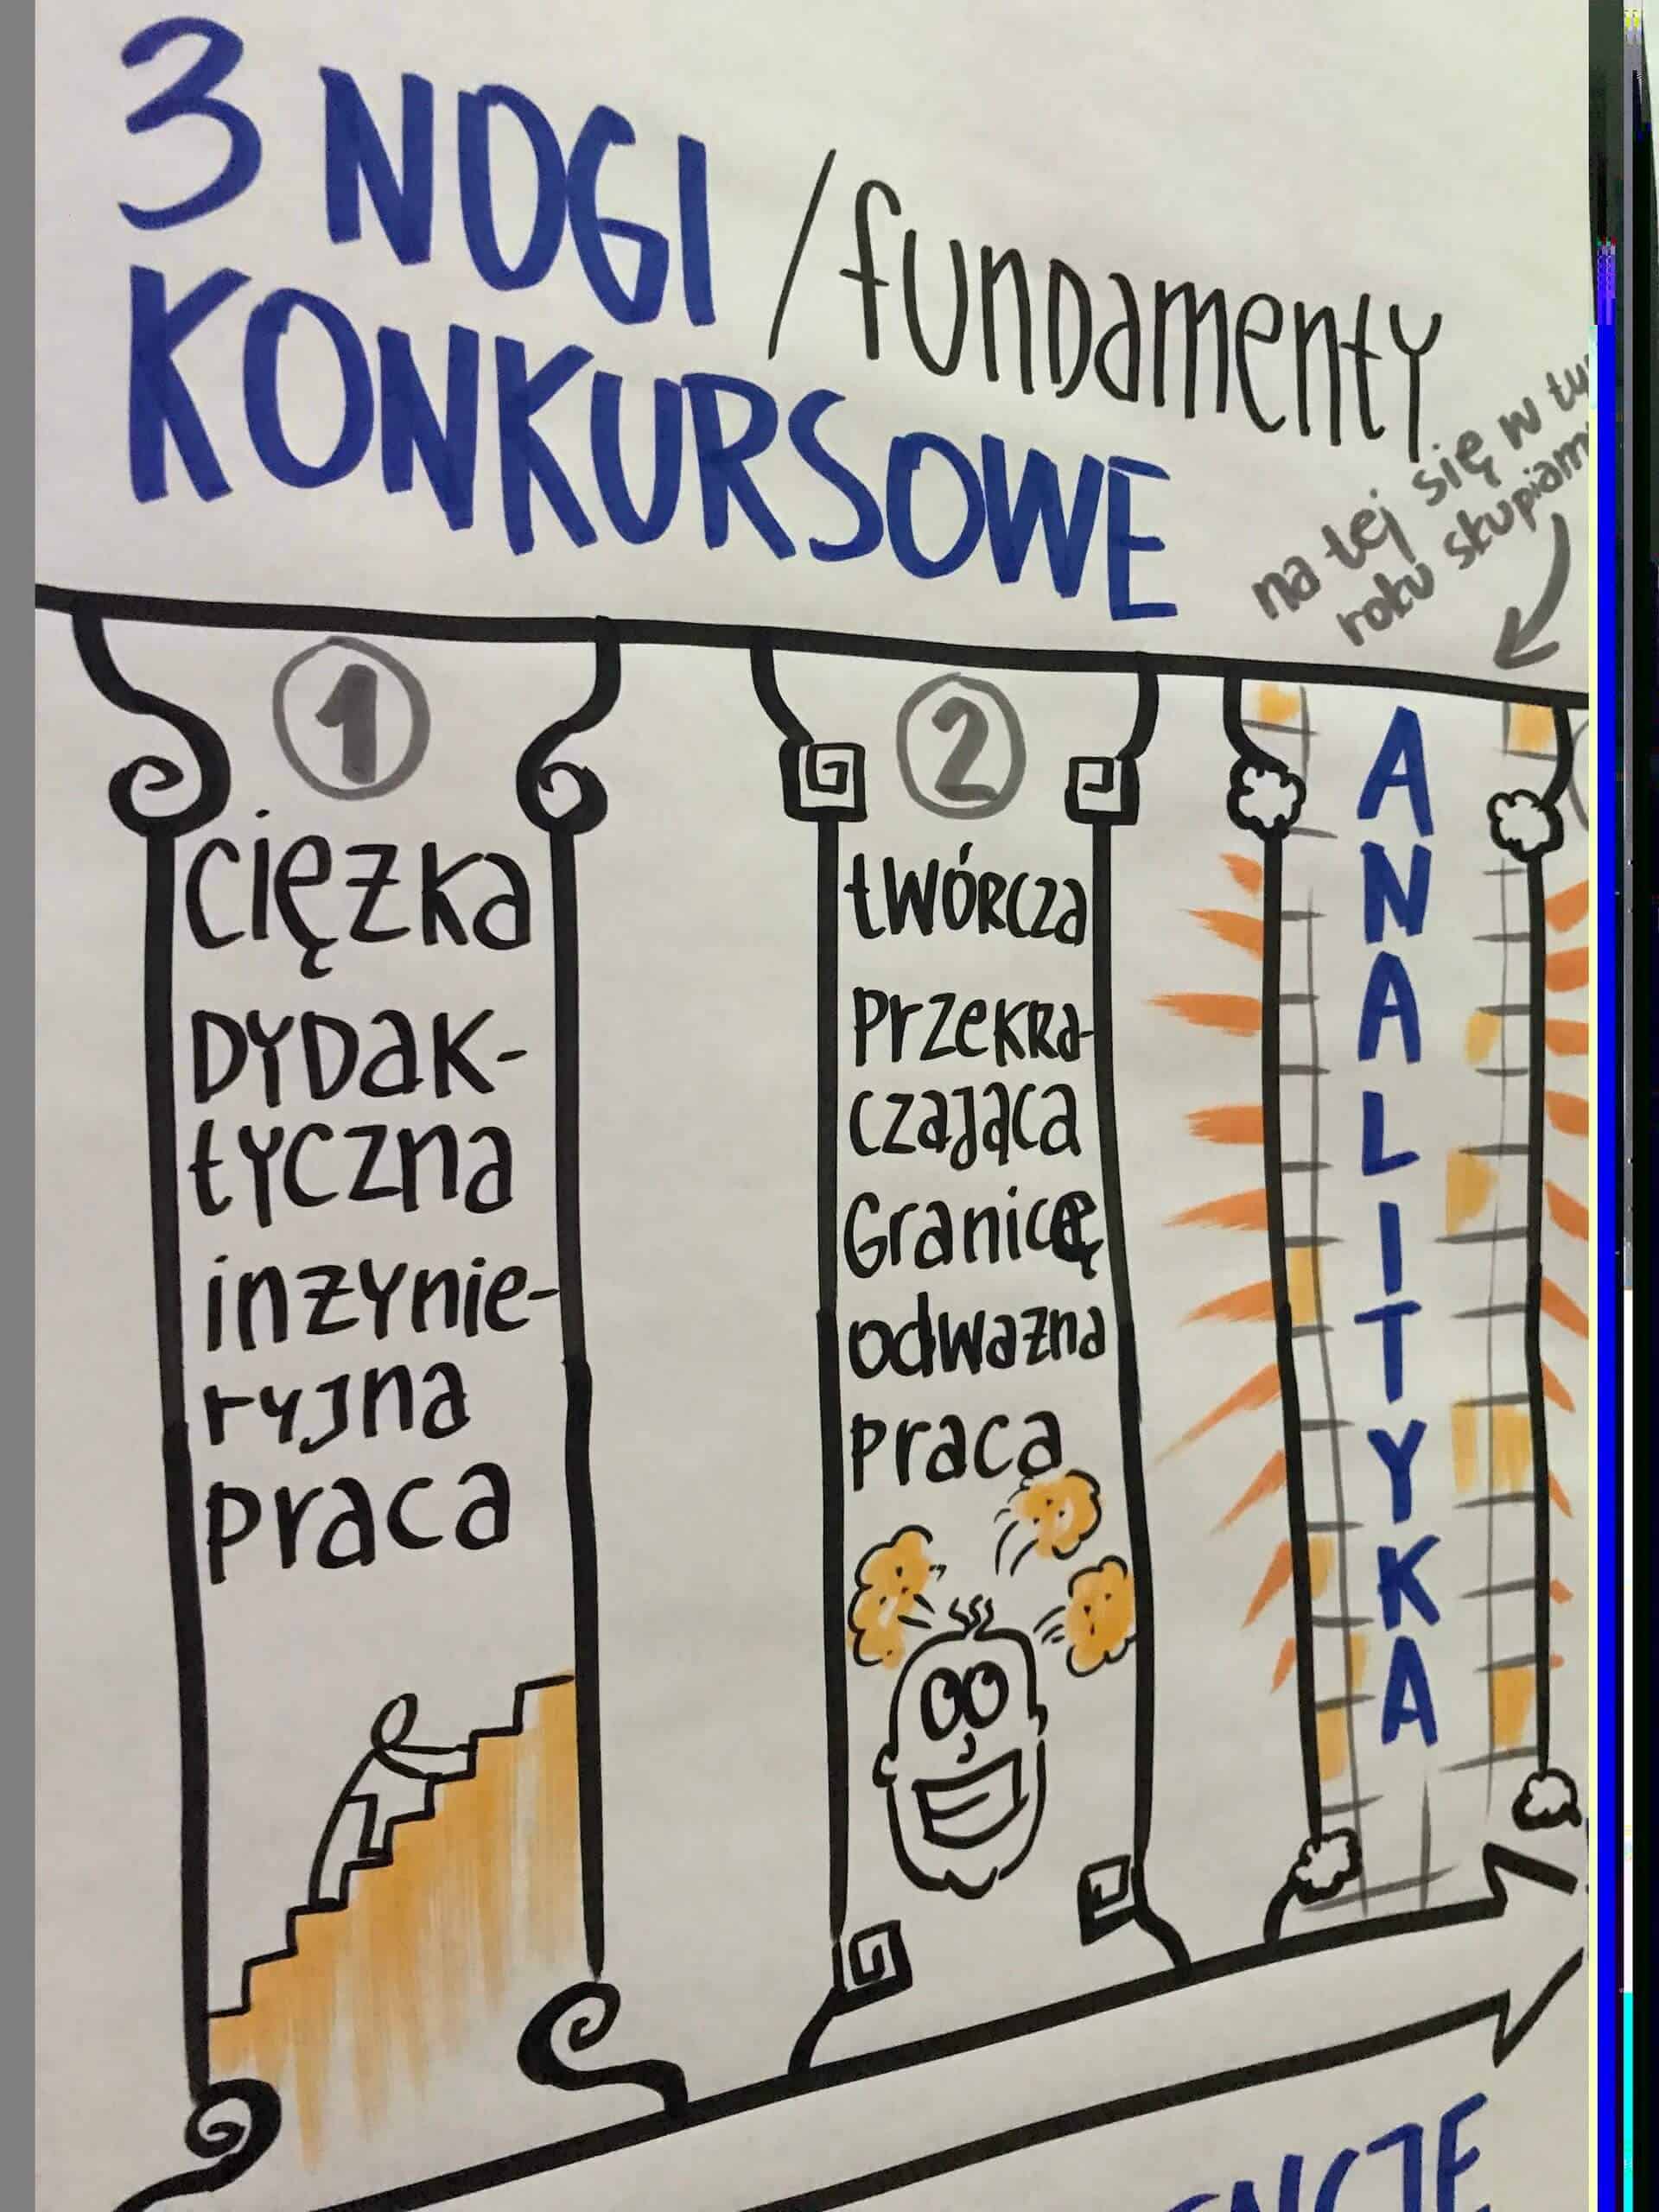 3 NOGI /fundamenty
KONKURSOWE
na tej się w
roku
1
ciężka
Dydak-
tyczna
inżynie-
ryjna
praca
2
twórcza
przekra-
czająca
Granicę
odważna
praca
ANALITYKA